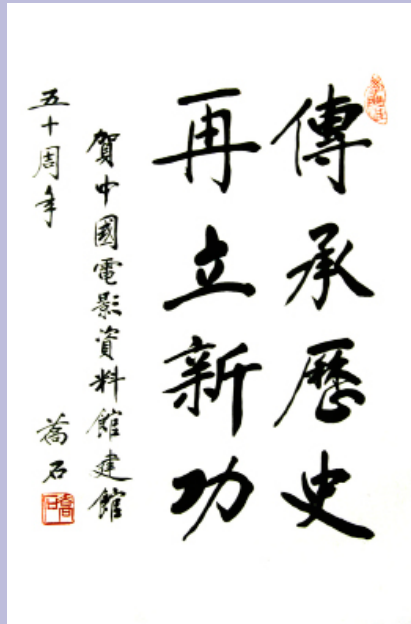 傳承歷史
再立新功
賀中國電影資料館建館
五十周年
喬石